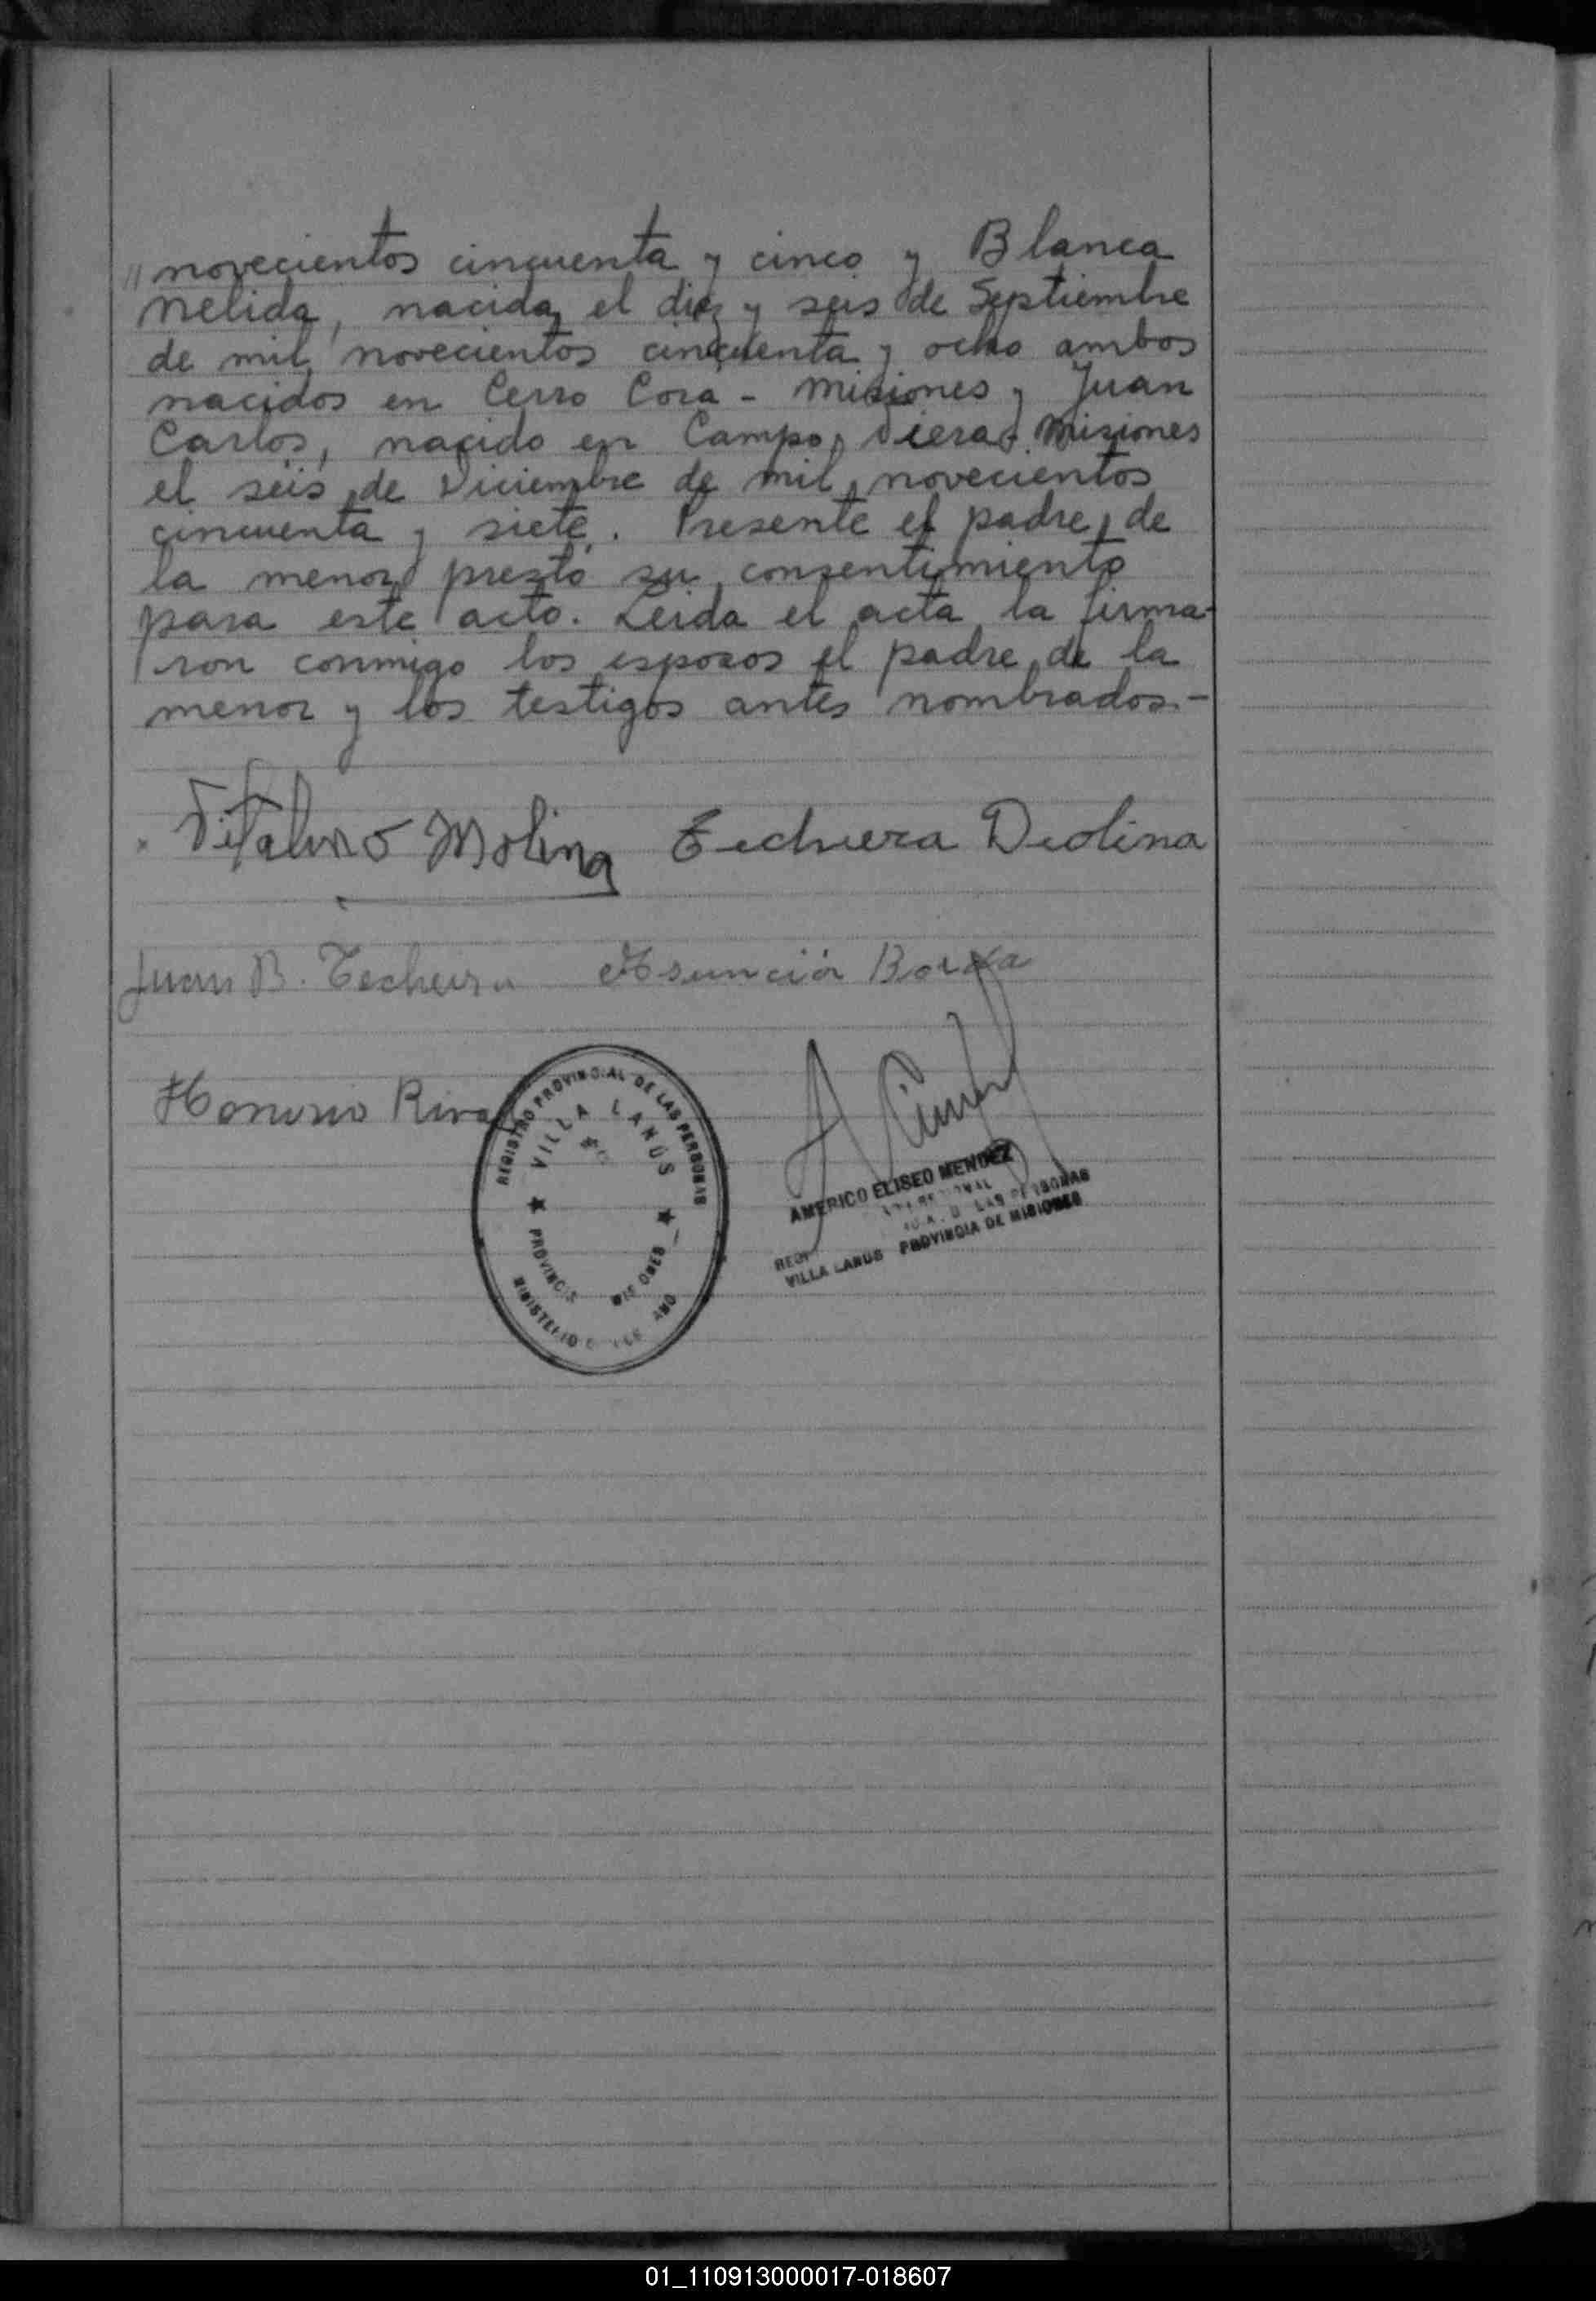 " novecientos cincuenta y cinco y Blanca
Nelida, nacida el diez y seis de Septiembre
de mil novecientos cincuenta y ocho ambos
nacidos en Cerro Cora - Misiones y Juan
Carlos, nacido en Campo Viera - Misiones
el seis de Diciembre de mil novecientos
cincuenta y siete. Presente el padre de
la menor prestó su consentimiento
para este acto. Leida el acta la firma-
ron conmigo los esposos el padre de la
menor y los testigos antes nombrados.-
Vitalino Molina Techeira Diolina
Juan B. Techeira Asunción Borja
Honorio Riva
REGISTRO PROVINCIAL DE LAS PERSONAS
VILLA LANÚS
PROVINCIA MISIONES
MINISTERIO
AMERICO ELISEO MENDEZ
LAS PERSONAS
VILLA LANUS PROVINCIA DE MISIONES
01_110913000017-018607